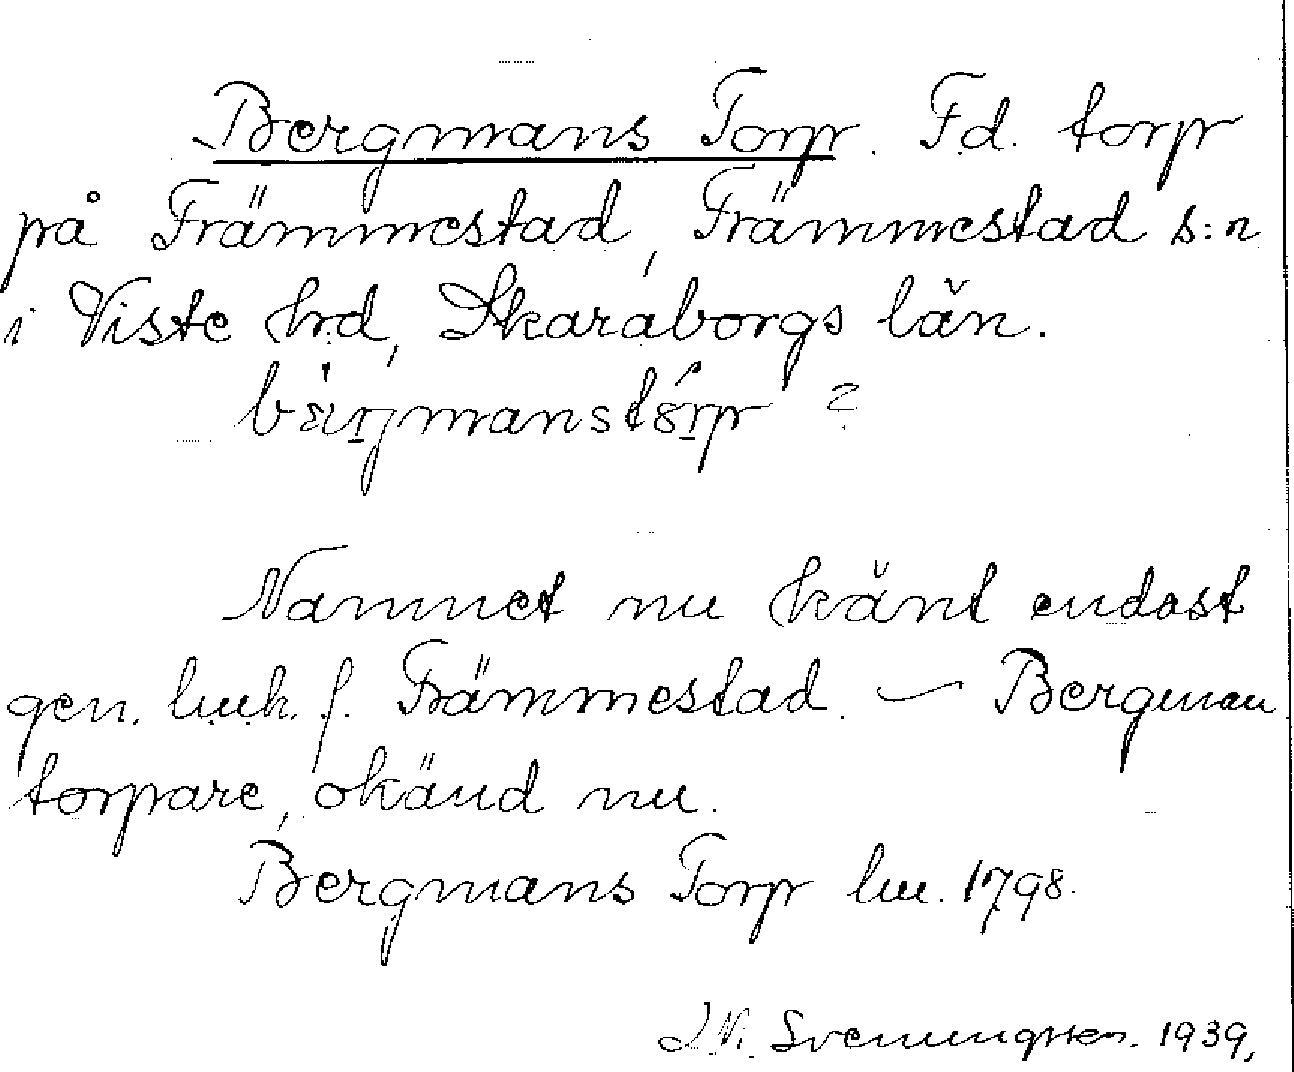 Bergmans Torp. F.d. torp
på Främmestad, Främmestad s:n
i Viste hrd, Skaraborgs län.
bærgmanstórp ?
Namnet nu känt endast
gen. lmk. f. Främmestad. — Bergman
torpare, okänd nu.
Bergmans Torp lm. 1798.
Svenungsson. 1939,